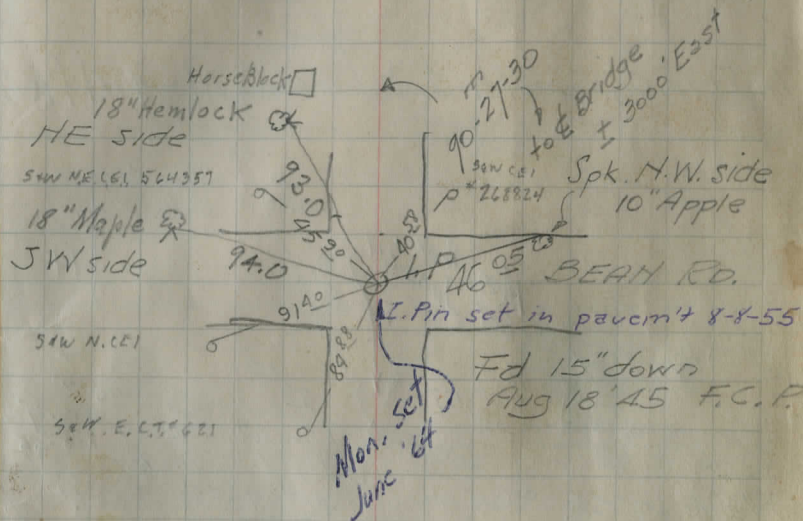 Horse Block
18" Hemlock
NE side
S&W N.E. CEI 564357
18" Maple
SW side
93.0
45.20
94.0
91.40
89.88
40.58
90-27-30
to ℄ Bridge
± 3000' East
S&W CEI
P#268824
Spk. N.W. side
10" Apple
I.P.
46.05
BEAN RD.
I. Pin set in pavem't 8-8-55
Fd 15" down
Aug 18 '45 F.C.P.
S&W N. CEI
Mon. Set
June '64